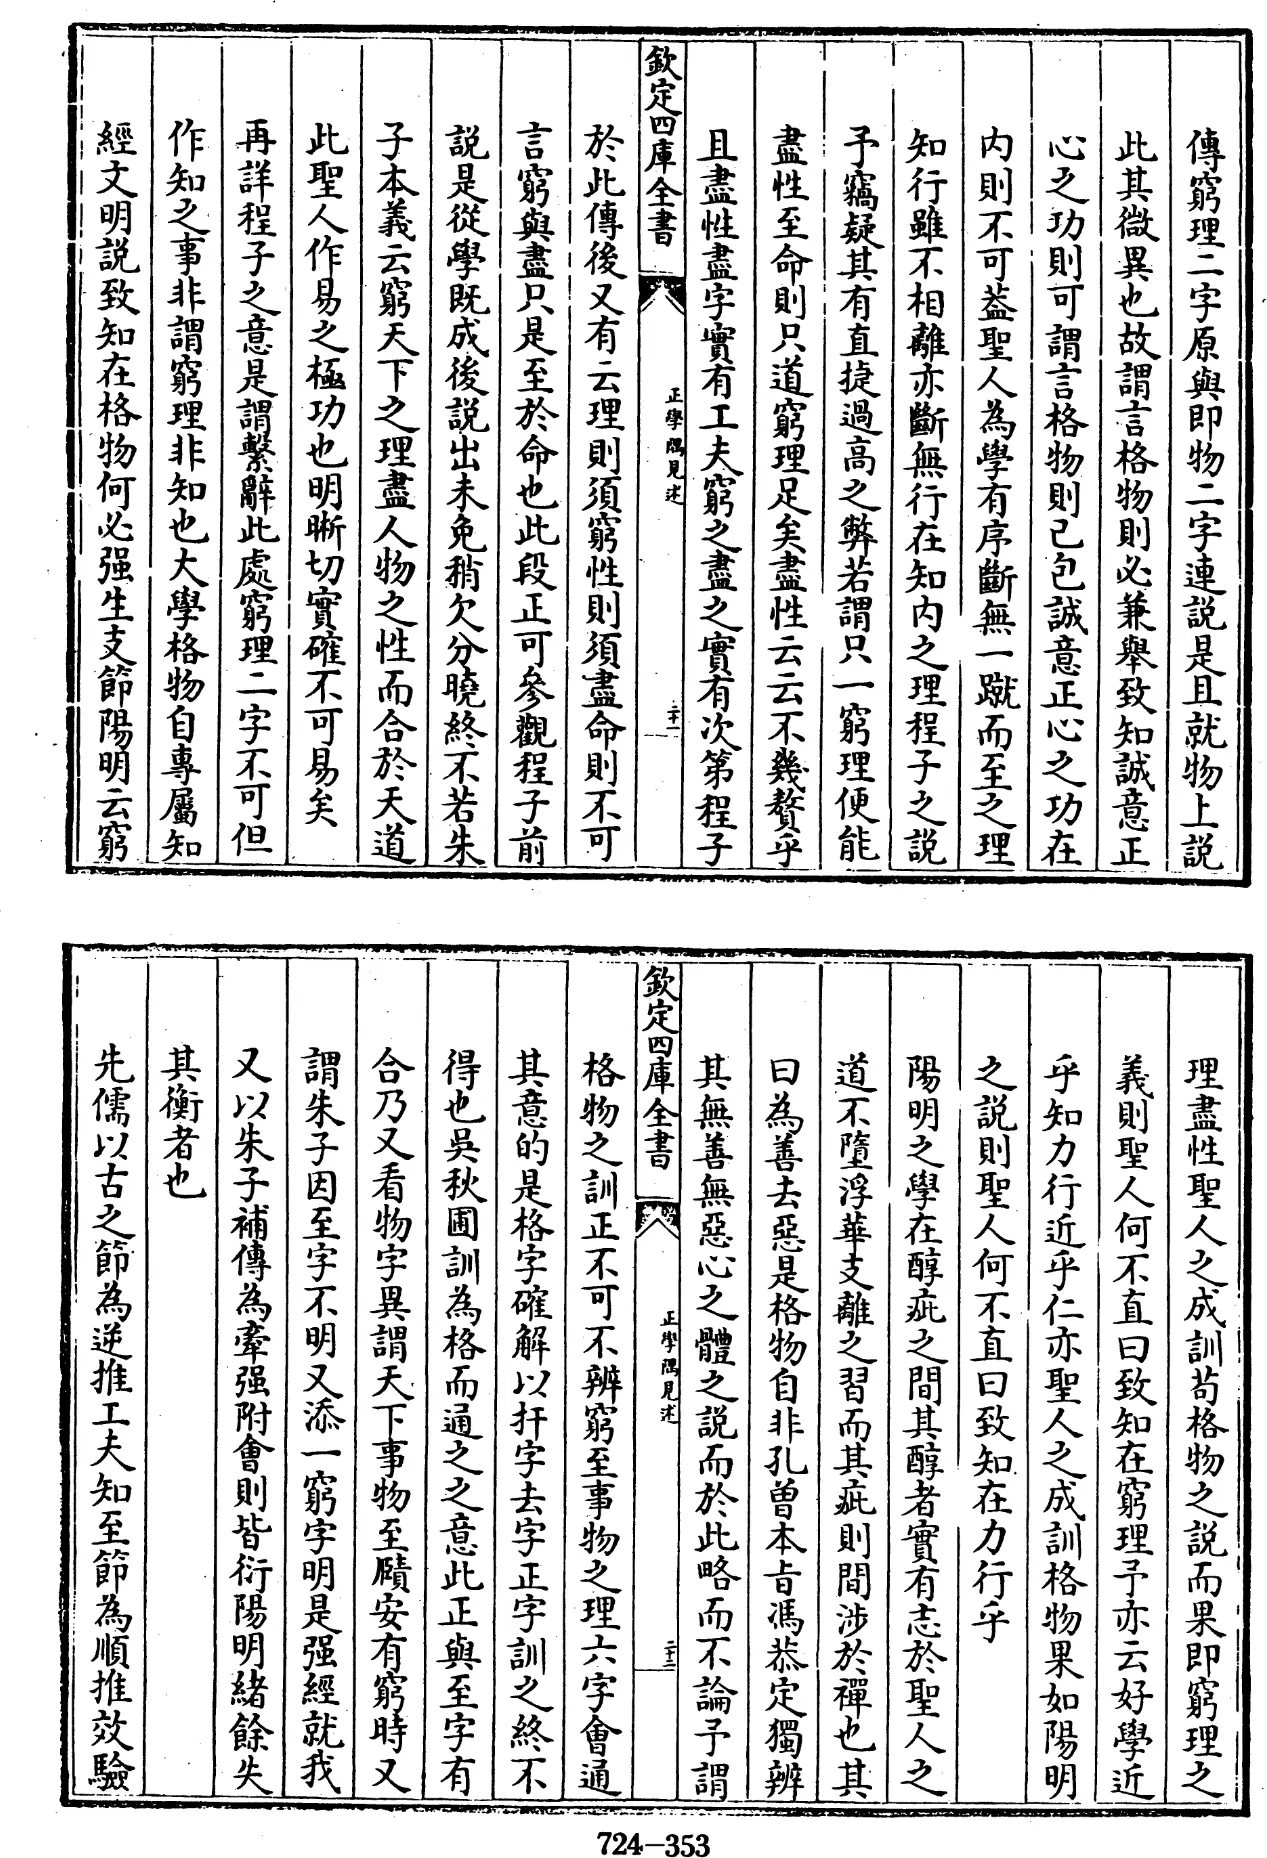 傳窮理二字原與即物二字連説是且就物上説
此其微異也故謂言格物則必兼舉致知誠意正
心之功則可謂言格物則已包誠意正心之功在
内則不可葢聖人為學有序斷無一蹴而至之理
知行雖不相離亦斷無行在知内之理程子之説
予竊疑其有直捷過高之弊若謂只一窮理便能
盡性至命則只道窮理足矣盡性云云不幾贅乎
且盡性盡字實有工夫窮之盡之實有次第程子
欽定四庫全書
正學隅見述
二十一
於此傳後又有云理則須窮性則須盡命則不可
言窮與盡只是至於命也此段正可參觀程子前
説是從學既成後説出未免稍欠分曉終不若朱
子本義云窮天下之理盡人物之性而合於天道
此聖人作易之極功也明晰切實確不可易矣
再詳程子之意是謂繫辭此處窮理二字不可但
作知之事非謂窮理非知也大學格物自專屬知
經文明説致知在格物何必强生支節陽明云窮
理盡性聖人之成訓苟格物之説而果即窮理之
義則聖人何不直曰致知在窮理予亦云好學近
乎知力行近乎仁亦聖人之成訓格物果如陽明
之説則聖人何不直曰致知在力行乎
陽明之學在醇疵之間其醇者實有志於聖人之
道不墮浮華支離之習而其疵則間涉於禪也其
曰為善去惡是格物自非孔曾本旨馮恭定獨辨
其無善無惡心之體之説而於此略而不論予謂
欽定四庫全書
正學隅見述
二十二
格物之訓正不可不辨窮至事物之理六字會通
其意的是格字確解以扞字去字正字訓之終不
得也吳秋圃訓為格而通之之意此正與至字有
合乃又看物字異謂天下事物至賾安有窮時又
謂朱子因至字不明又添一窮字明是强經就我
又以朱子補傳為牽强附會則皆衍陽明緒餘失
其衡者也
先儒以古之節為逆推工夫知至節為順推效驗
724-353